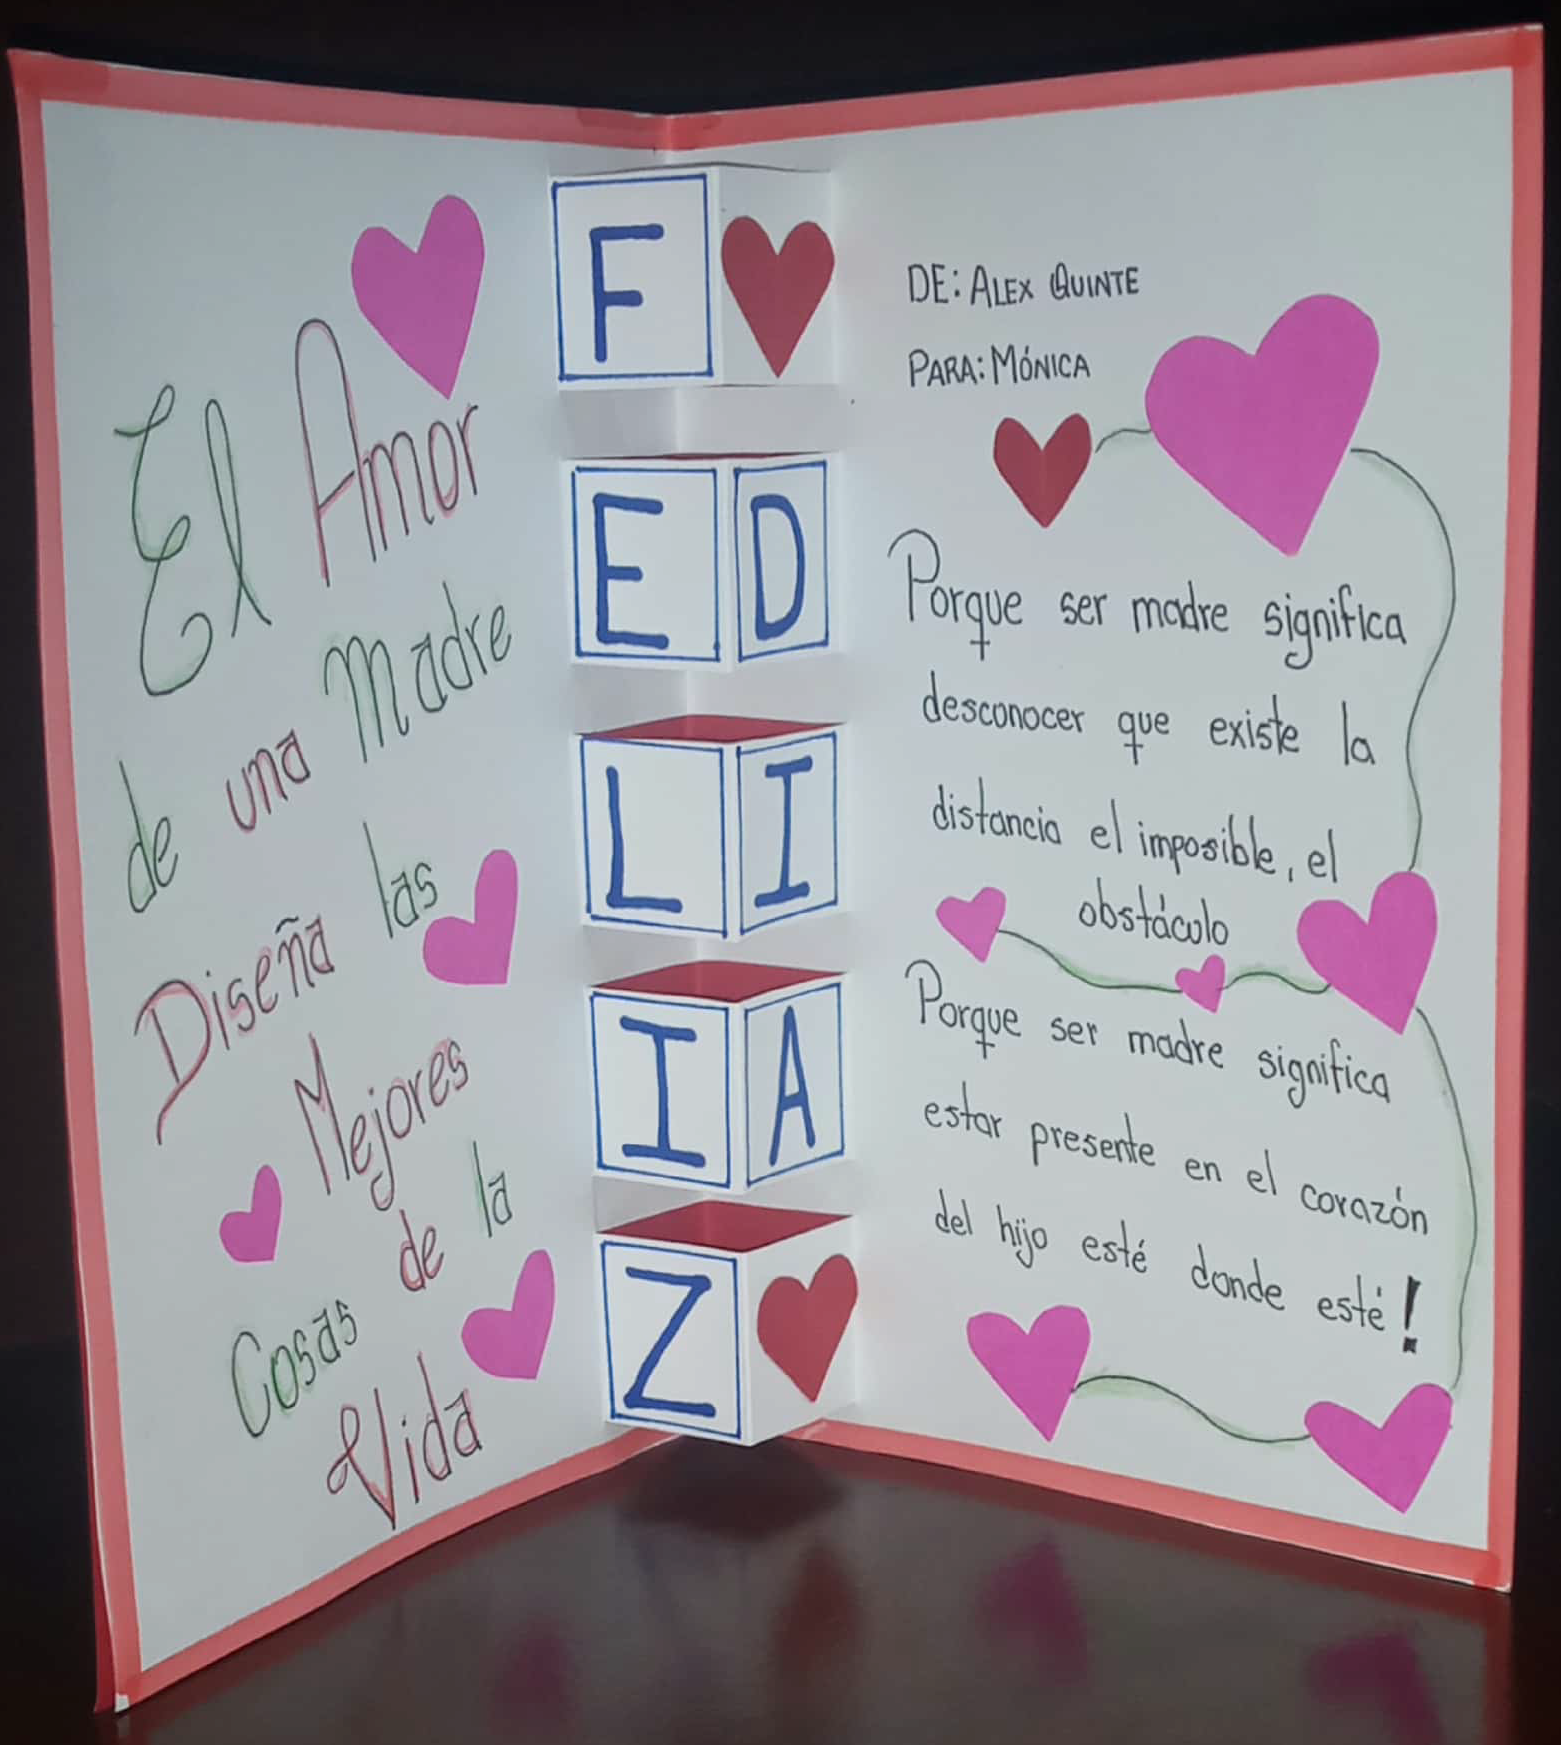 El Amor
de una Madre
Diseña las
Mejores
de la
Cosas
Vida
F
E D
L I
I A
Z
DE: ALEX QUINTE
PARA: MÓNICA
Porque ser madre significa
desconocer que existe la
distancia el imposible, el
obstáculo
Porque ser madre significa
estar presente en el corazón
del hijo esté donde esté!